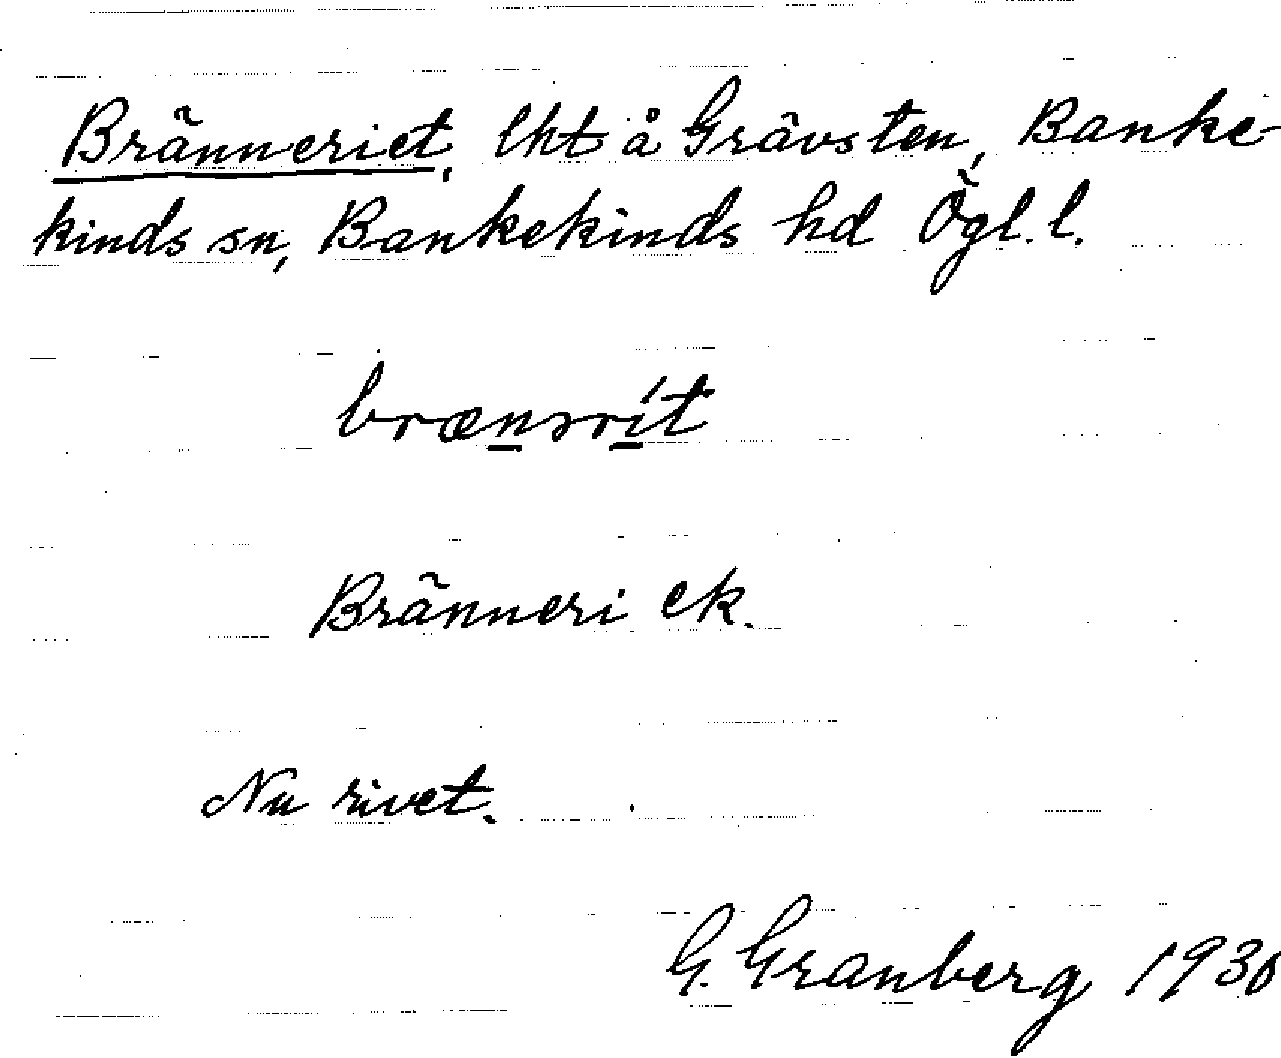 Bränneriet, lht å Grävsten, Banke-
kinds sn, Bankekinds hd Ögl. l.
brænərít
Bränneri ek.
Nu rivet.
G. Granberg 1930